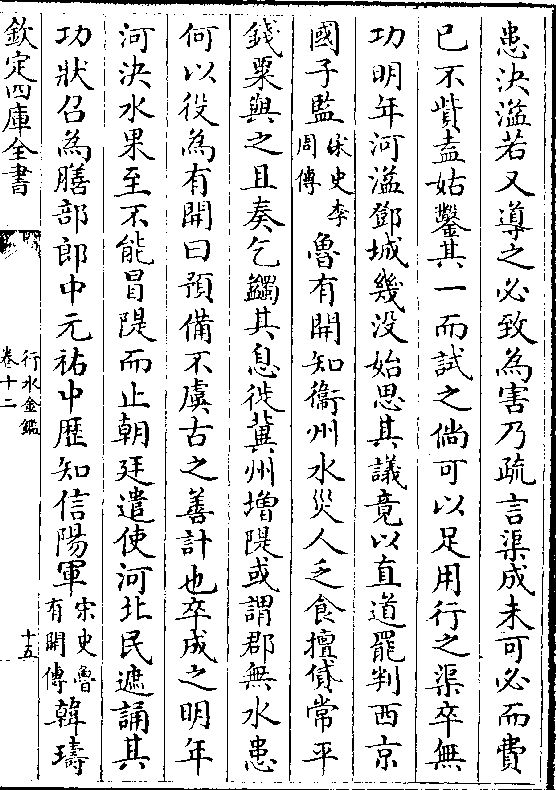 患決溢若又導之必致為害乃疏言渠成未可必而費
已不貲盍姑鑿其一而試之倘可以足用行之渠卒無
功明年河溢鄧城幾没始思其議竟以直道罷判西京
國子監宋史李周傳魯有開知衞州水災人乏食擅貸常平
錢粟與之且奏乞蠲其息徙冀州增隄或謂郡無水患
何以役為有開曰預備不虞古之善計也卒成之明年
河決水果至不能冒隄而止朝廷遣使河北民遮誦其
功狀召為膳部郎中元祐中歷知信陽軍宋史魯有開傳韓璹
欽定四庫全書
行水金鑑
卷十二
十五